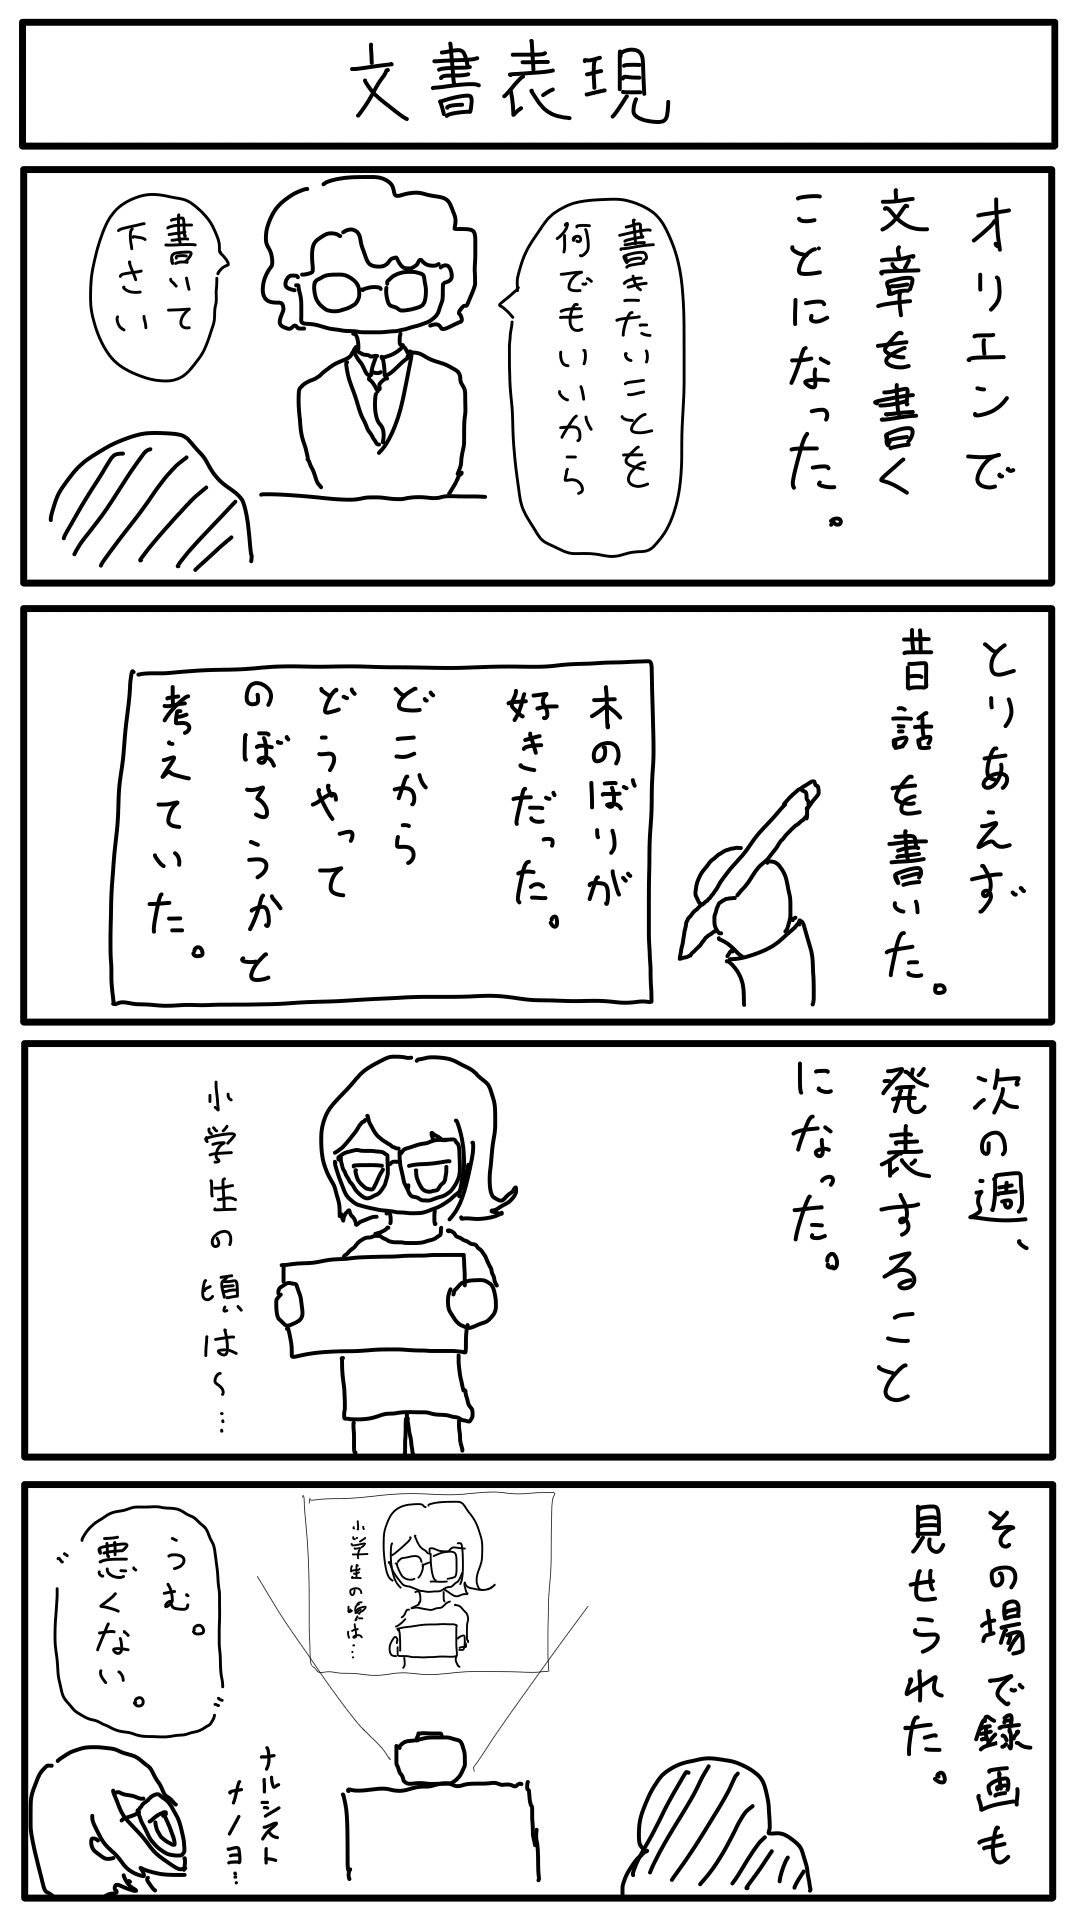 文書表現
オリエンで
文章を書く
ことになった。
書きたいことを
何でもいいから
書いて
下さい
とりあえず
昔話を書いた。
木のぼりが
好きだった。
どこから
どうやって
のぼろうかと
考えていた。
次の週、
発表すること
になった。
小学生の頃は〜…
その場で録画も
見せられた。
小学生の頃は…
うむ。
悪くない。
ナルシスト
ナノヨ…